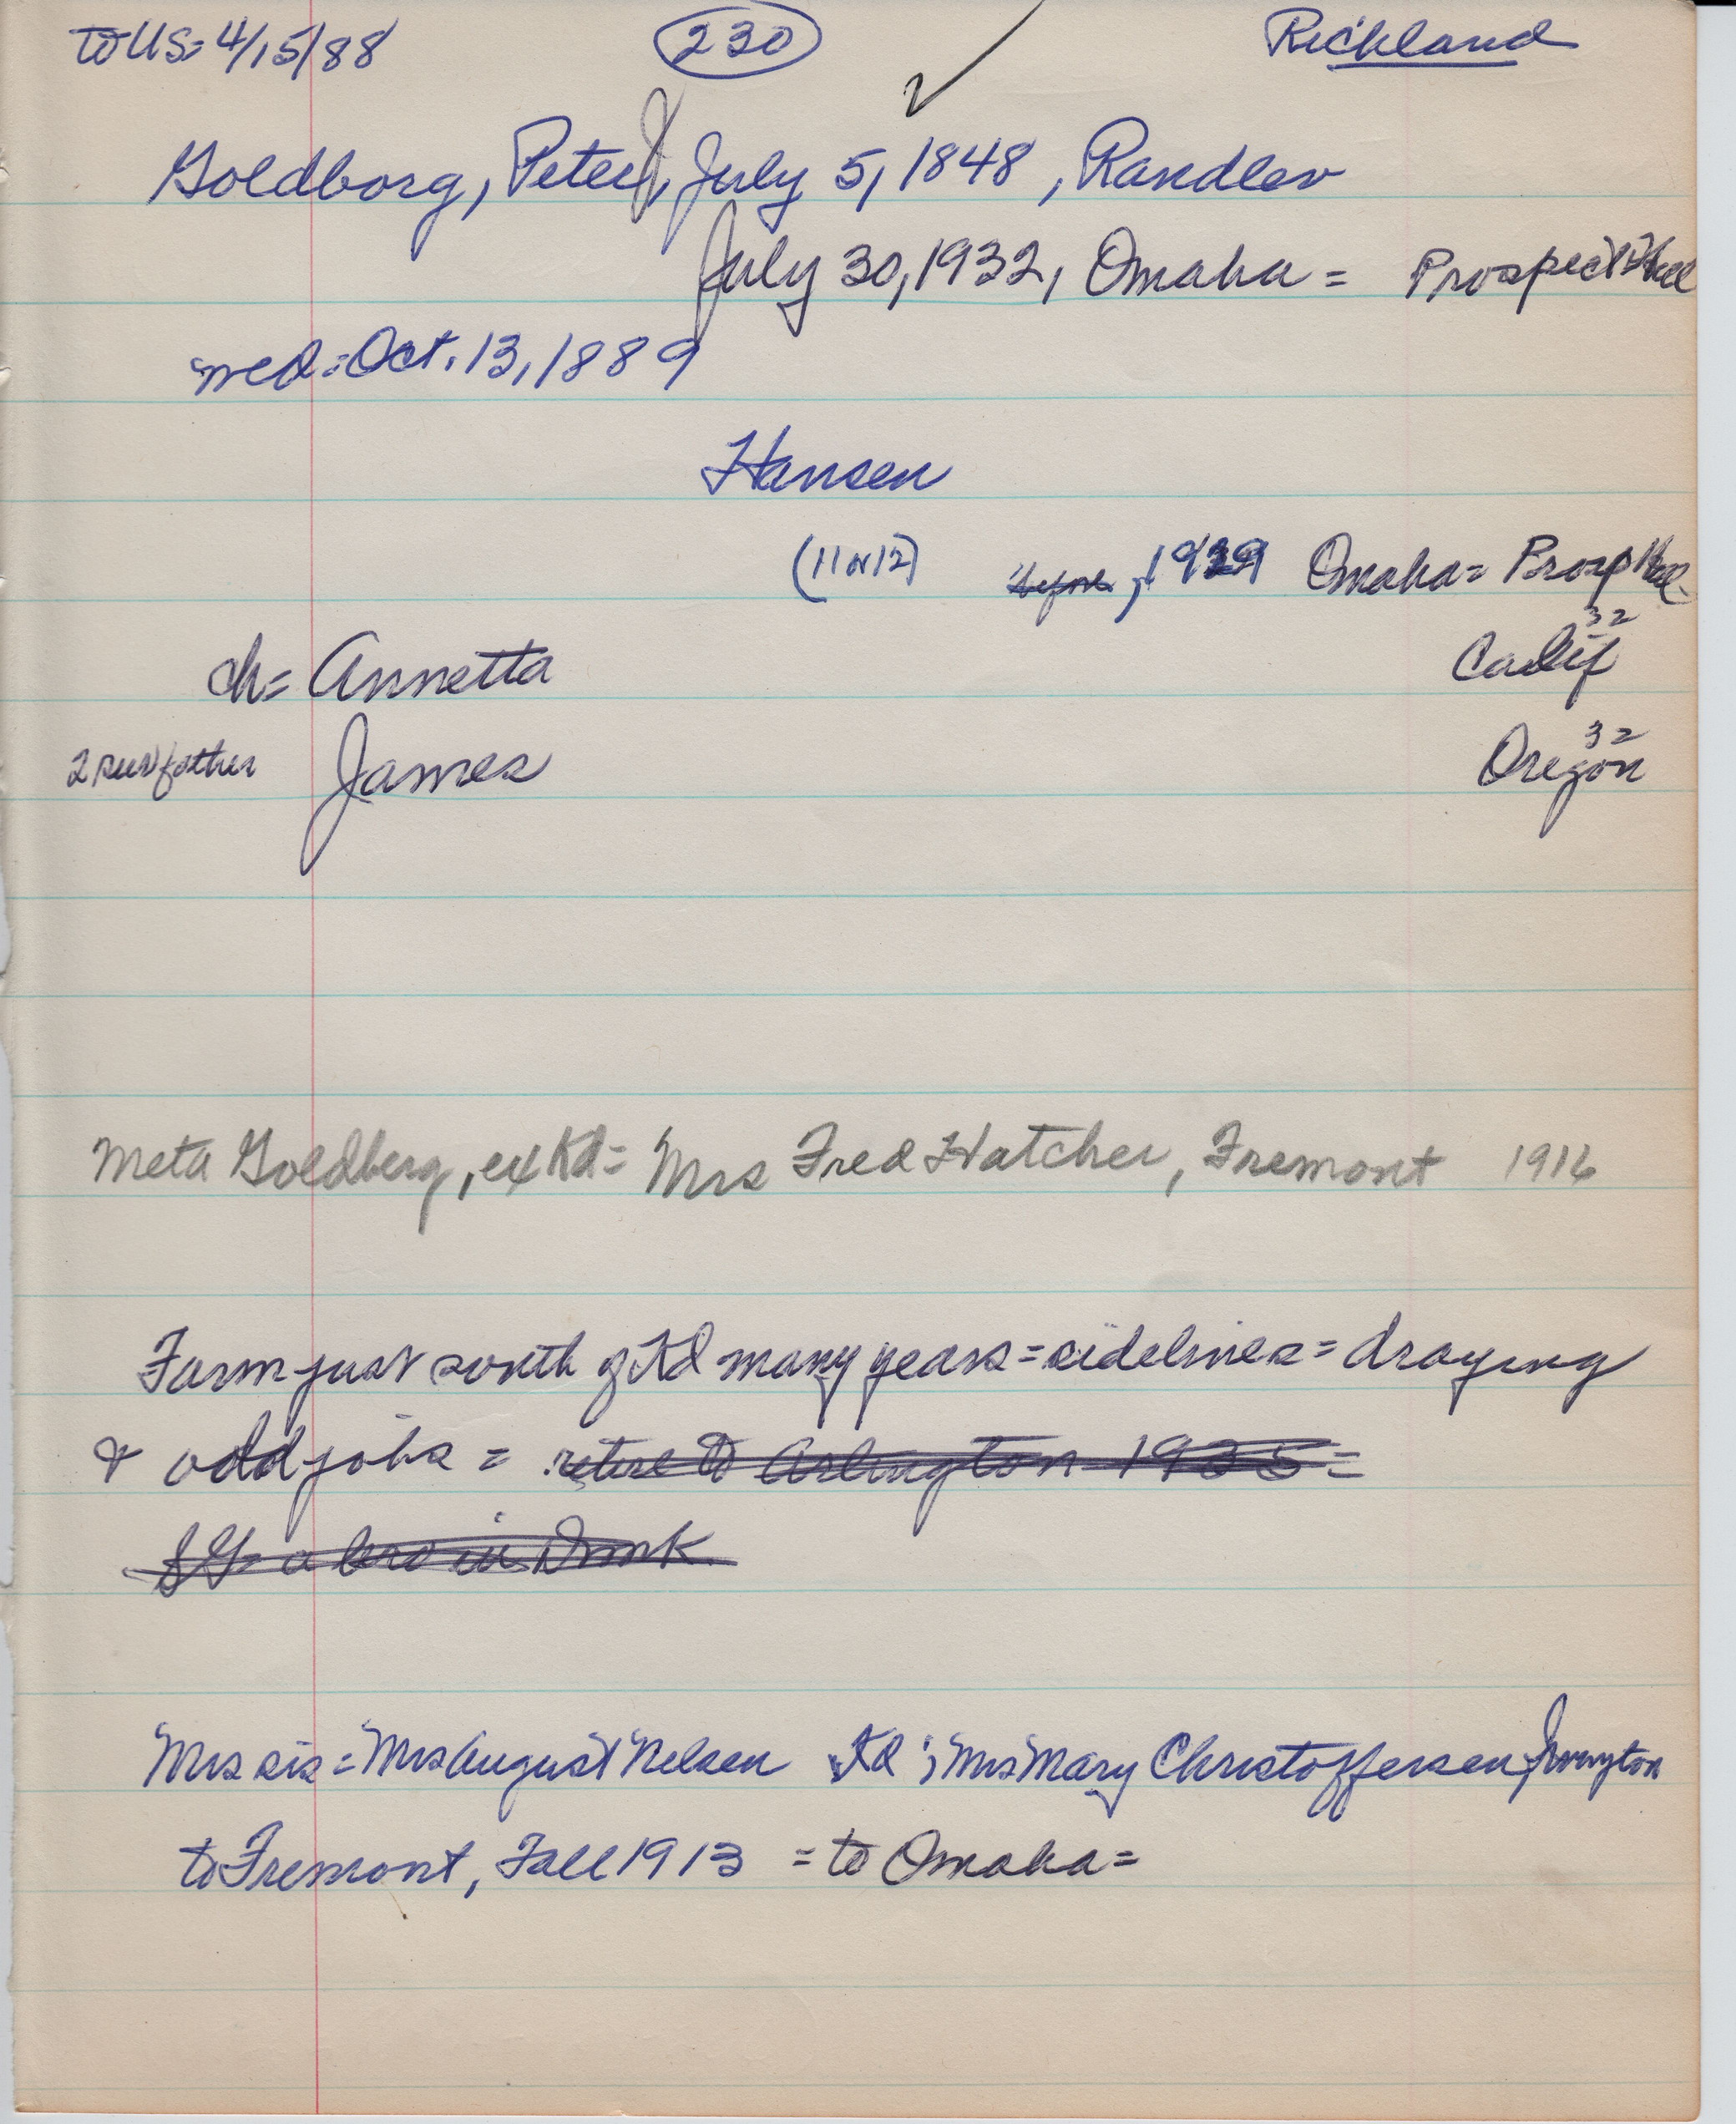 to US = 4/15/88 230 ✓ Richland
Goldborg, Peter J, July 5, 1848, Randlev
July 30, 1932, Omaha = Prospect Hill
wed = Oct. 13, 1889
Hansen
(11 or 12) before, 1929 Omaha = Prosp Hill
ch = Annetta Calif 32
2 surv father James Oregon 32
Meta Goldberg, ex Kd = Mrs Fred Hatcher, Fremont 1916
Farm just south of Kd many years = sidelines = draying
& odd jobs = retire to Arlington 1935 =
a bro in Dmk
Mrs sis = Mrs August Nelsen Kd ; Mrs Mary Christoffersen, Irvington
to Fremont, Fall 1913 = to Omaha =